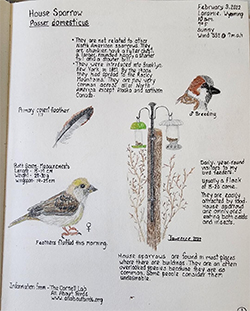 House Sparrow
Passer domesticus
February 3, 2022
Laramie, Wyoming
10 am
7°F
Sunny
Wind SSE @ 7 mph
• They are not related to other
North American sparrows. They
are chunkier, have a fuller chest,
a larger, rounded head, a shorter
tail and a stouter bill.
• They were introduced into Brooklyn,
New York, in 1851. By the 1900s
they had spread to the Rocky
Mountains. They are now very
common across all of North
America except Alaska and northern
Canada.
♂ Breeding
Primary covert feather
Both Sexes-Measurements
Length - 15-17 cm
Weight - 27-30 g
Wingspan - 19-25 cm
♀
Feathers fluffed this morning.
Daily, year-round
visitors to my
tree feeders.
Usually a flock
of 15-20 come.
They are easily
attracted by food.
House sparrows
are omnivores
eating both seeds
and insects.
House sparrows are found in most places
where there are buildings. They are an often
overlooked species because they are so
common. Some people consider them
undesirable.
Information from - The Cornell Lab
All About Birds
www.allaboutbirds.org